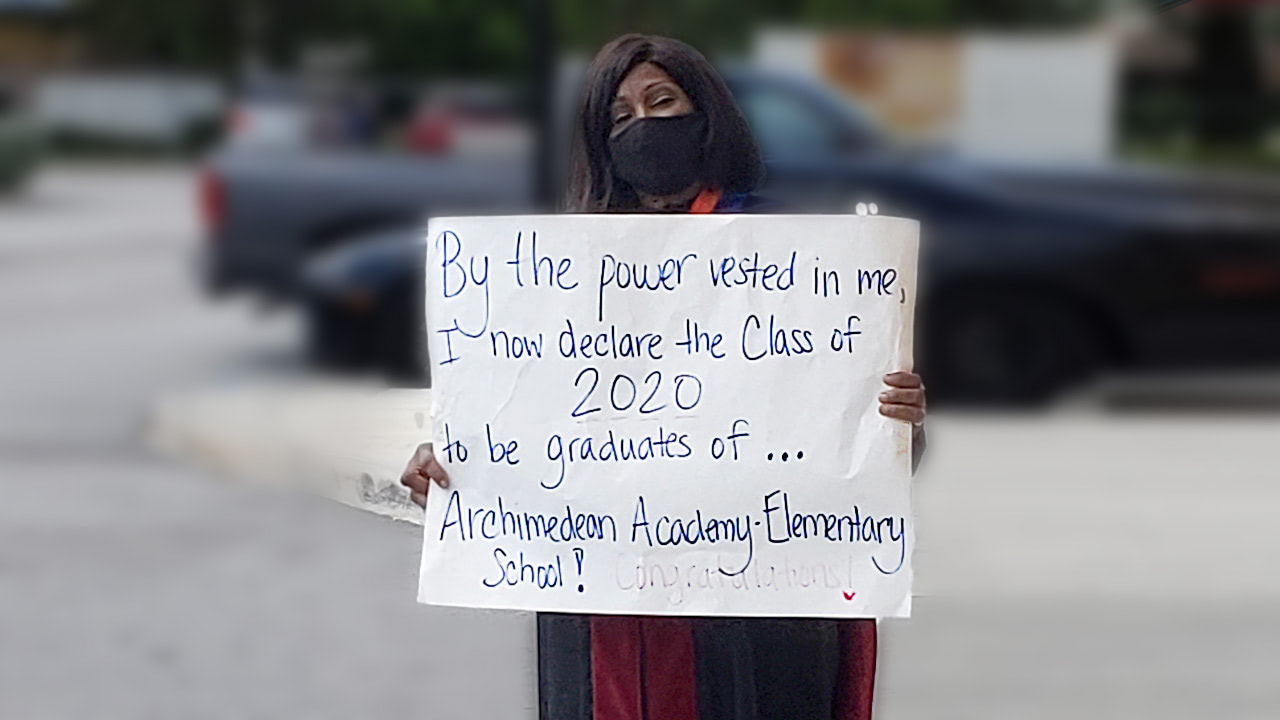 By the power vested in me,
I now declare the Class of
2020
to be graduates of ...
Archimedean Academy-Elementary
School! Congratulations!